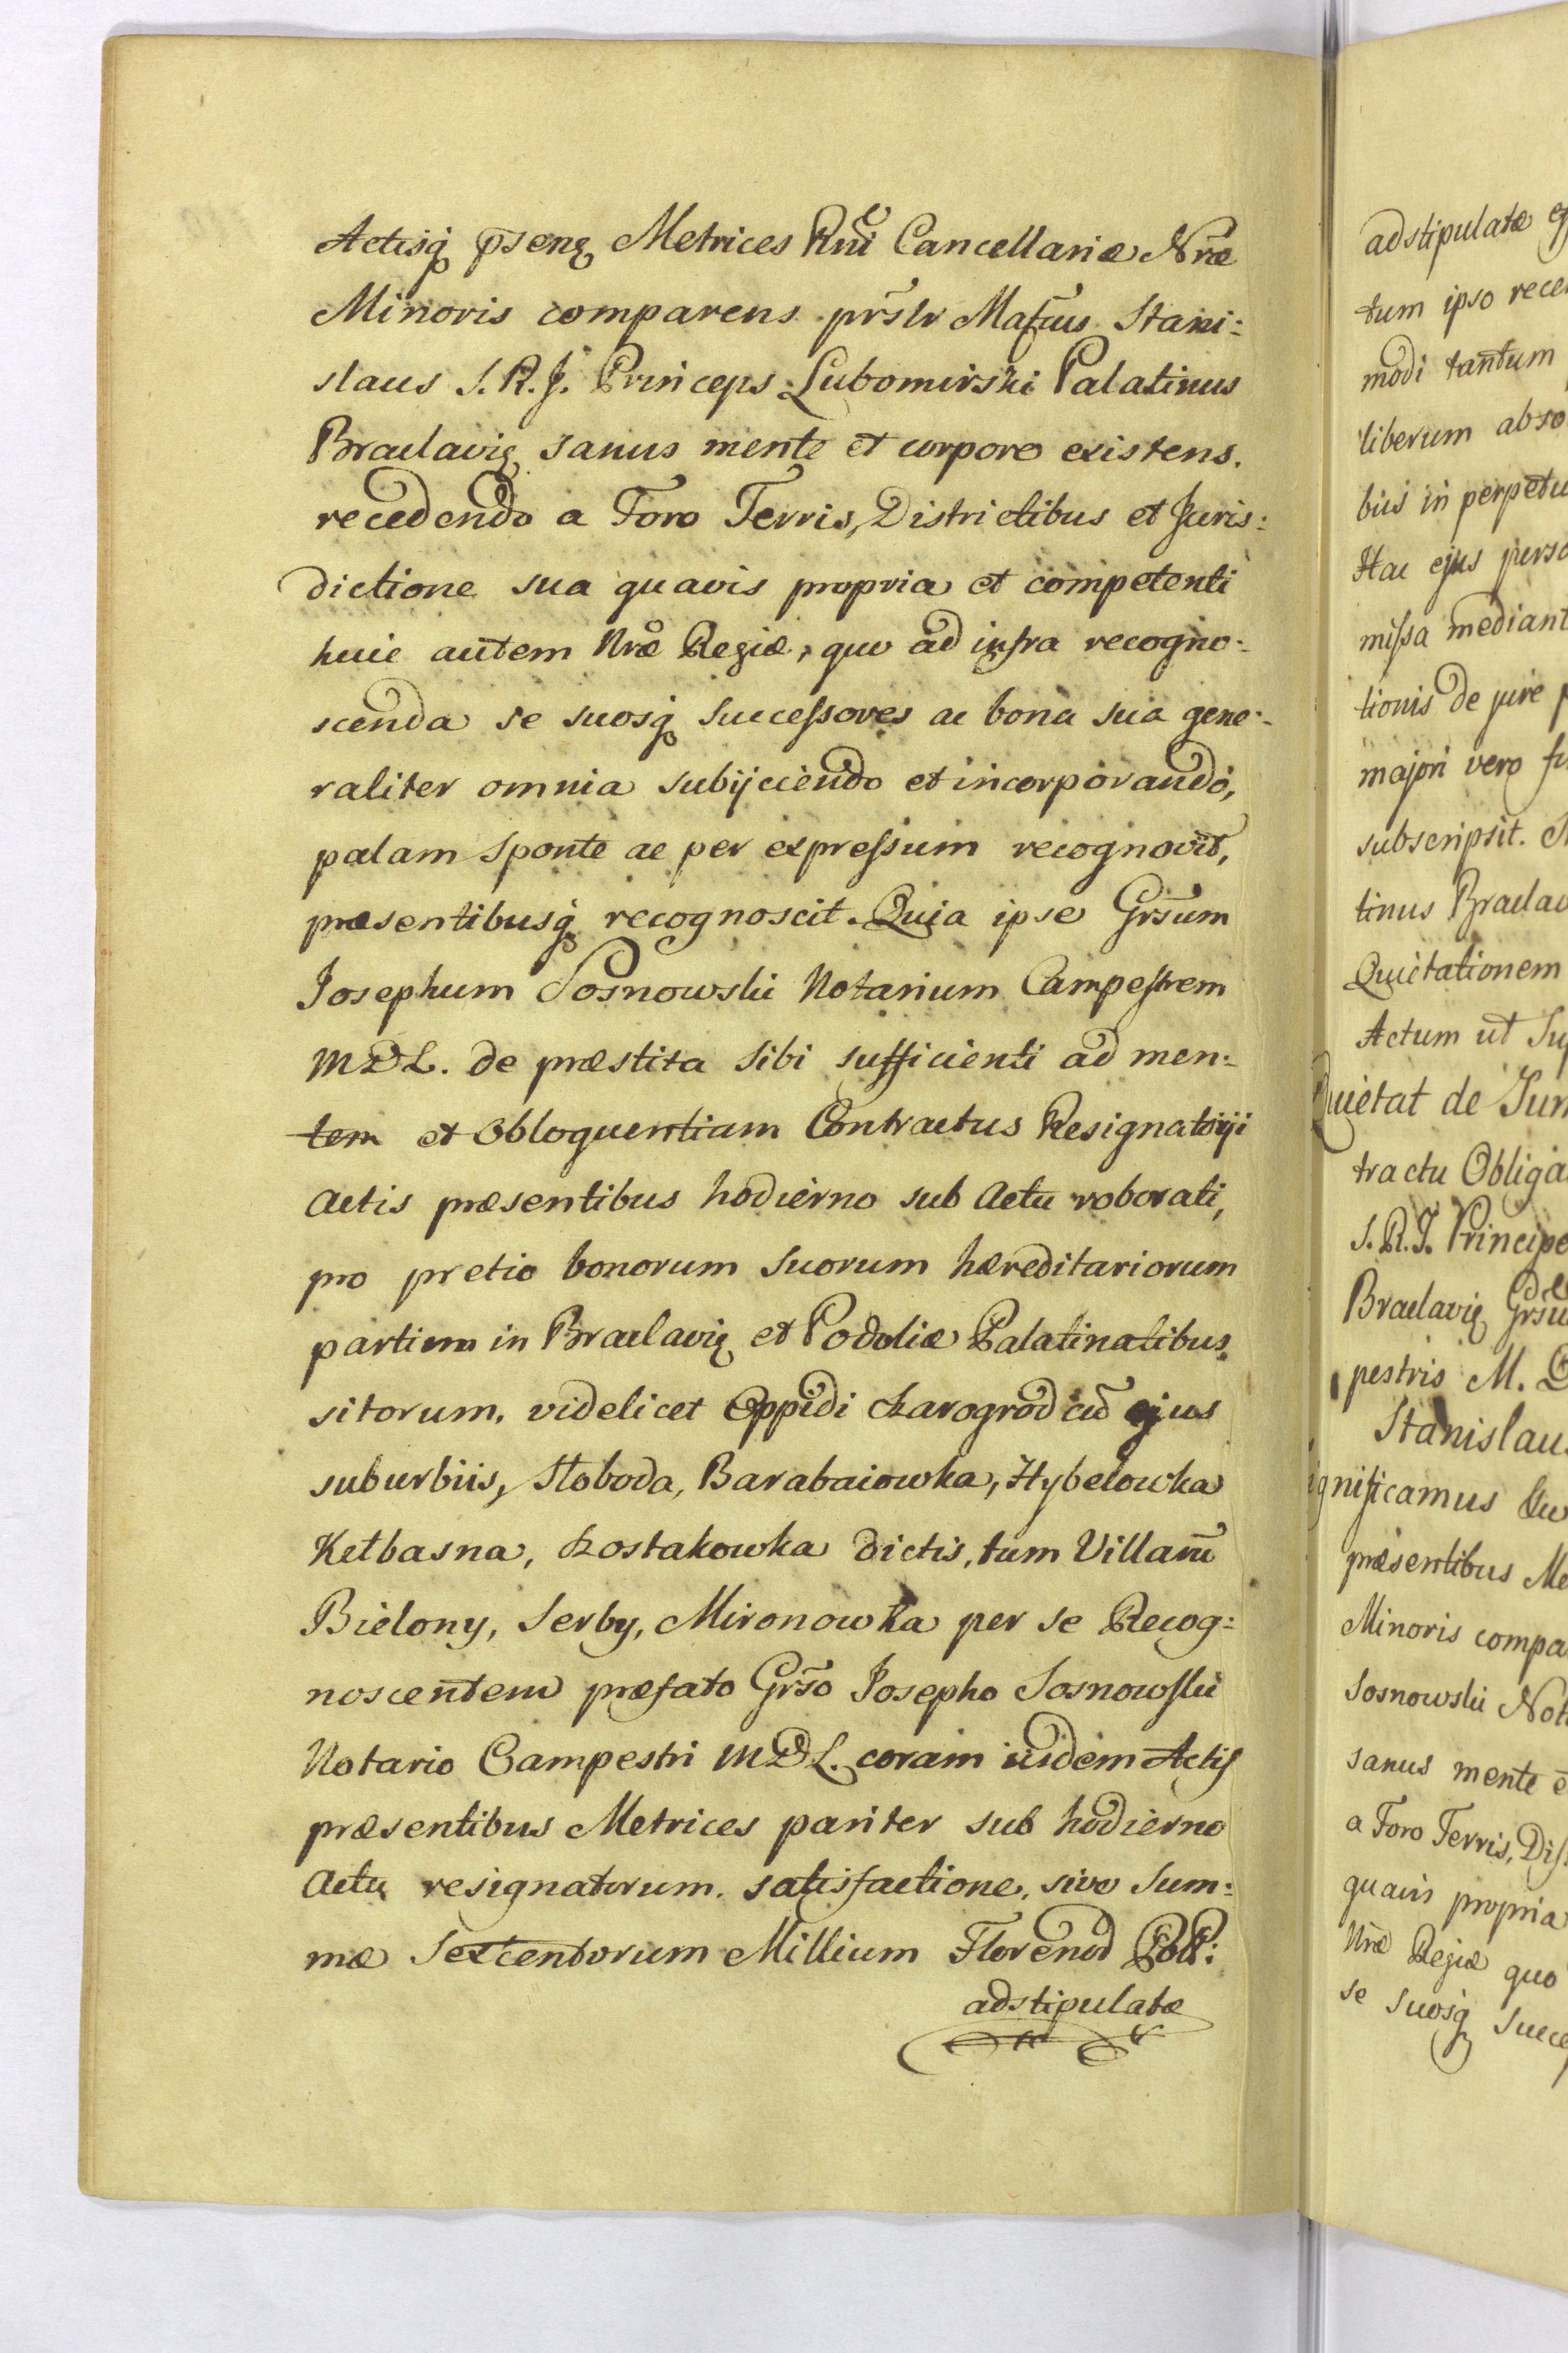 Actisq̃ p̃senę Metrices Rni Cancellariæ Nræ
Minoris comparens prs̃lr Mafcus Stani:
slaus S. R. J. Princeps Lubomirski Palatinus
Braclavię sanus mente et corpore existens.
recedendo a Foro Terris, Districtibus et Juris:
dictione sua quavis propria et competenti
huic autem Nræ Regiæ, quo ad infra recogno:
scenda se suosq̃ successores ac bona sua gene:
raliter omnia subijciendo et incorporando,
palam sponte ac per expressum recognovit,
præsentibusq̃ recognoscit. Quia ipse Grs̃um
Josephum Sosnowski Notarium Campestrem
MDL. de præstita sibi sufficienti ad men:
tem et Obloquentiam Contractus Resignatorij
Actis præsentibus hodierno sub Actu roborati,
pro pretio bonorum suorum hæreditariorum
partim in Braclavię et Podoliæ Palatinatibus
sitorum, videlicet Oppidi Szarogrod cũ ejus
suburbiis, Sloboda, Barabaiowka, Hybelowka
Kelbasna, Szostakowka dictis, tum Villarũ
Bielony, Serby, Mironowka per se Recog:
noscentem præfato Grs̃o Josepho Sosnowski
Notario Campestri MDL. coram iisdem Actis
præsentibus Metrices pariter sub hodierno
Actu resignatorum. satisfactione, sive Sum:
mæ Sexcentorum Millium Florenod Poll:
adstipulatæ
adstipulatæ
tum ipso
modi tantum
liberum abso
bus in perpetu
Hac ejus perso
missa mediant
tionis de jure
majori vero
subscripsit.
tinus Braclav
Quietationem
Actum ut Sup
Quietat de
tractu Obliga
S. R. J. Principe
Braclavię Grs̃u
pestris M.
Stanislaus
ignificamus
præsentibus Me
Minoris compa
Sosnowski Not
sanus mente
a Foro Terris, Dis
quavis propria
Nræ Regiæ quo
se suosq̃ succe